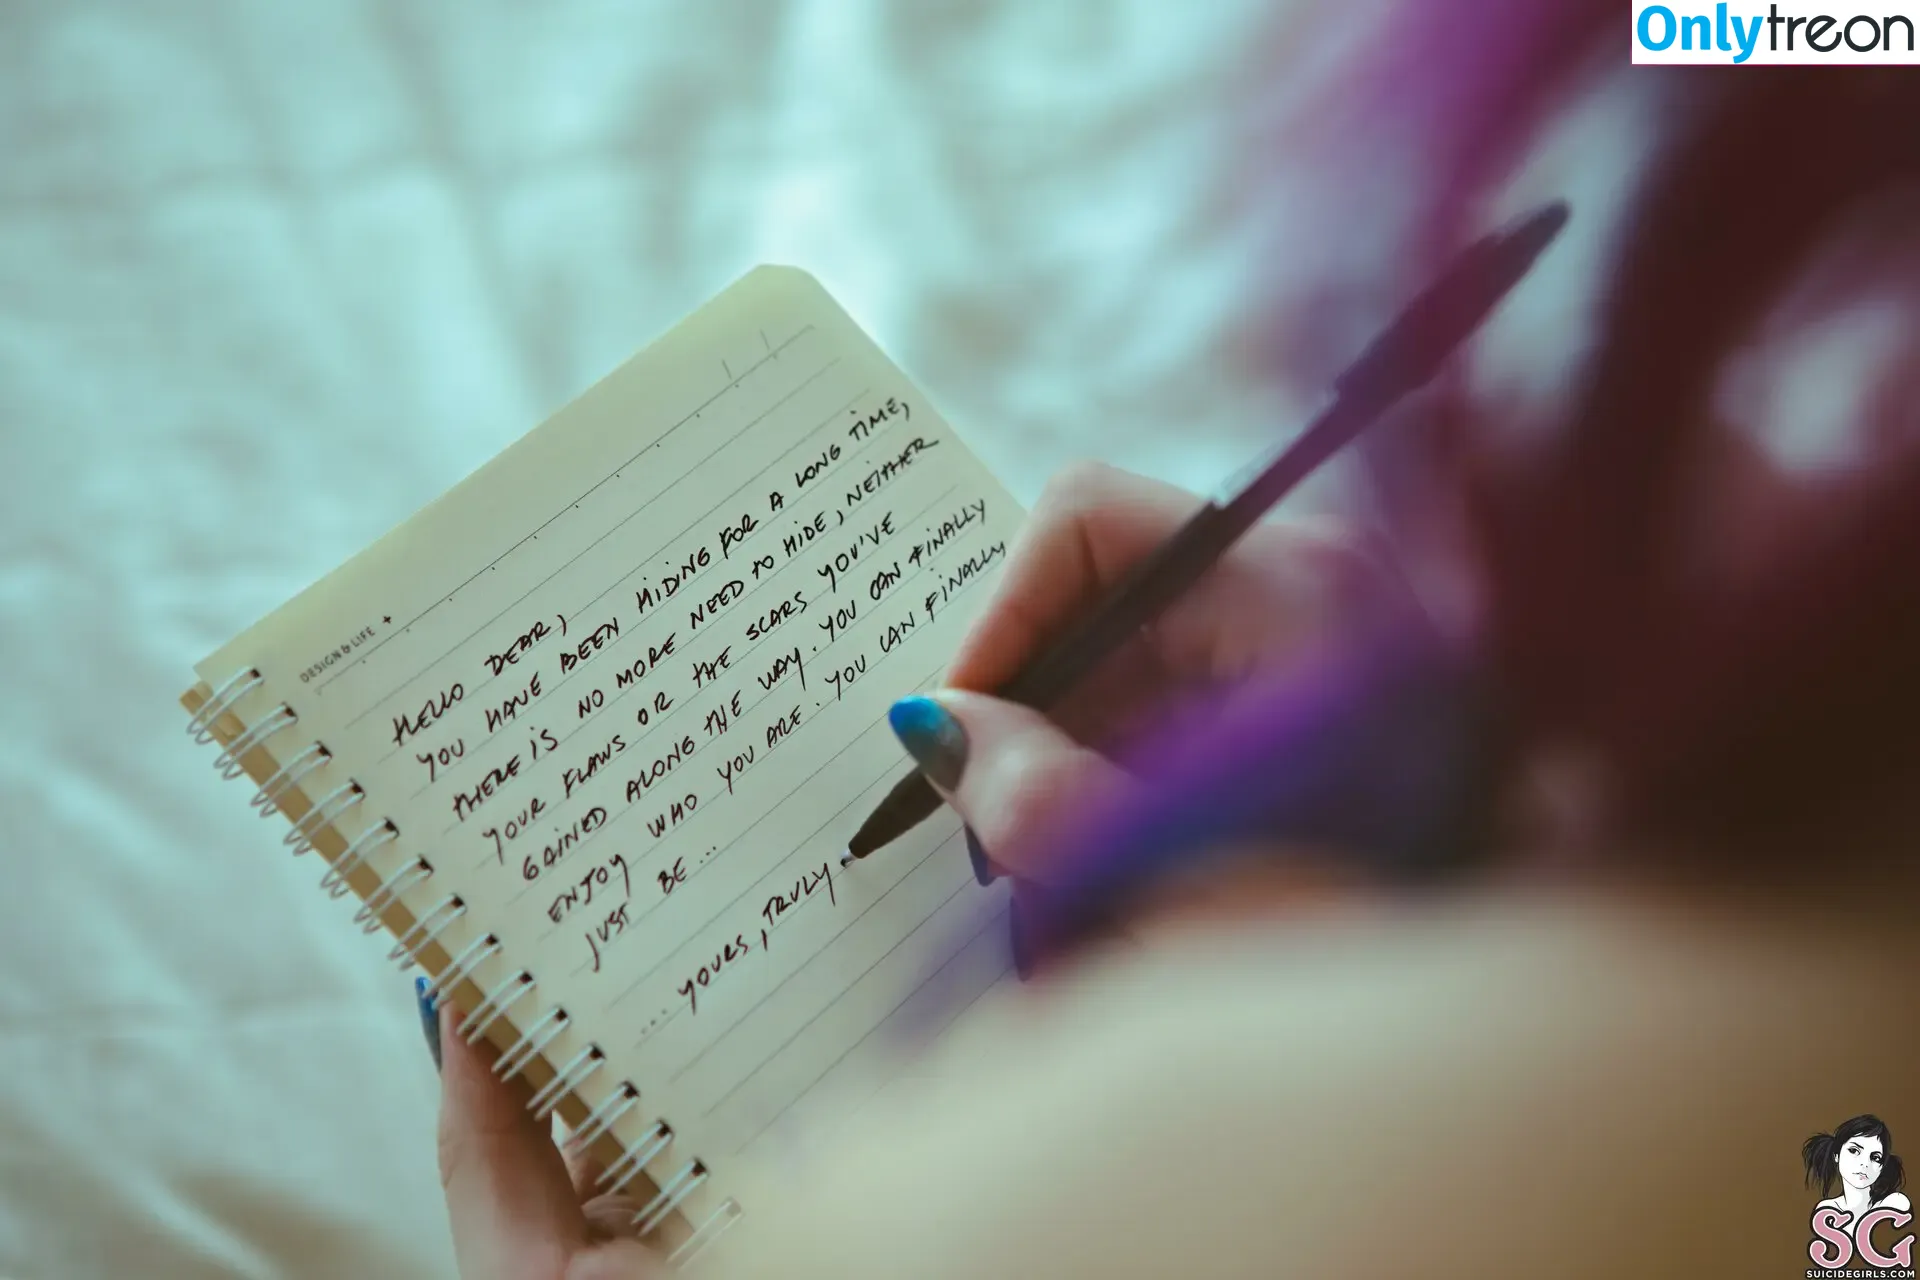 Onlytreon
DESIGN & LIFE +
HELLO DEAR,
YOU HAVE BEEN HIDING FOR A LONG TIME,
THERE IS NO MORE NEED TO HIDE, NEITHER
YOUR FLAWS OR THE SCARS YOU'VE
GAINED ALONG THE WAY. YOU CAN FINALLY
ENJOY WHO YOU ARE. YOU CAN FINALLY
JUST BE...
... YOURS, TRULY
SG
SUICIDEGIRLS.COM